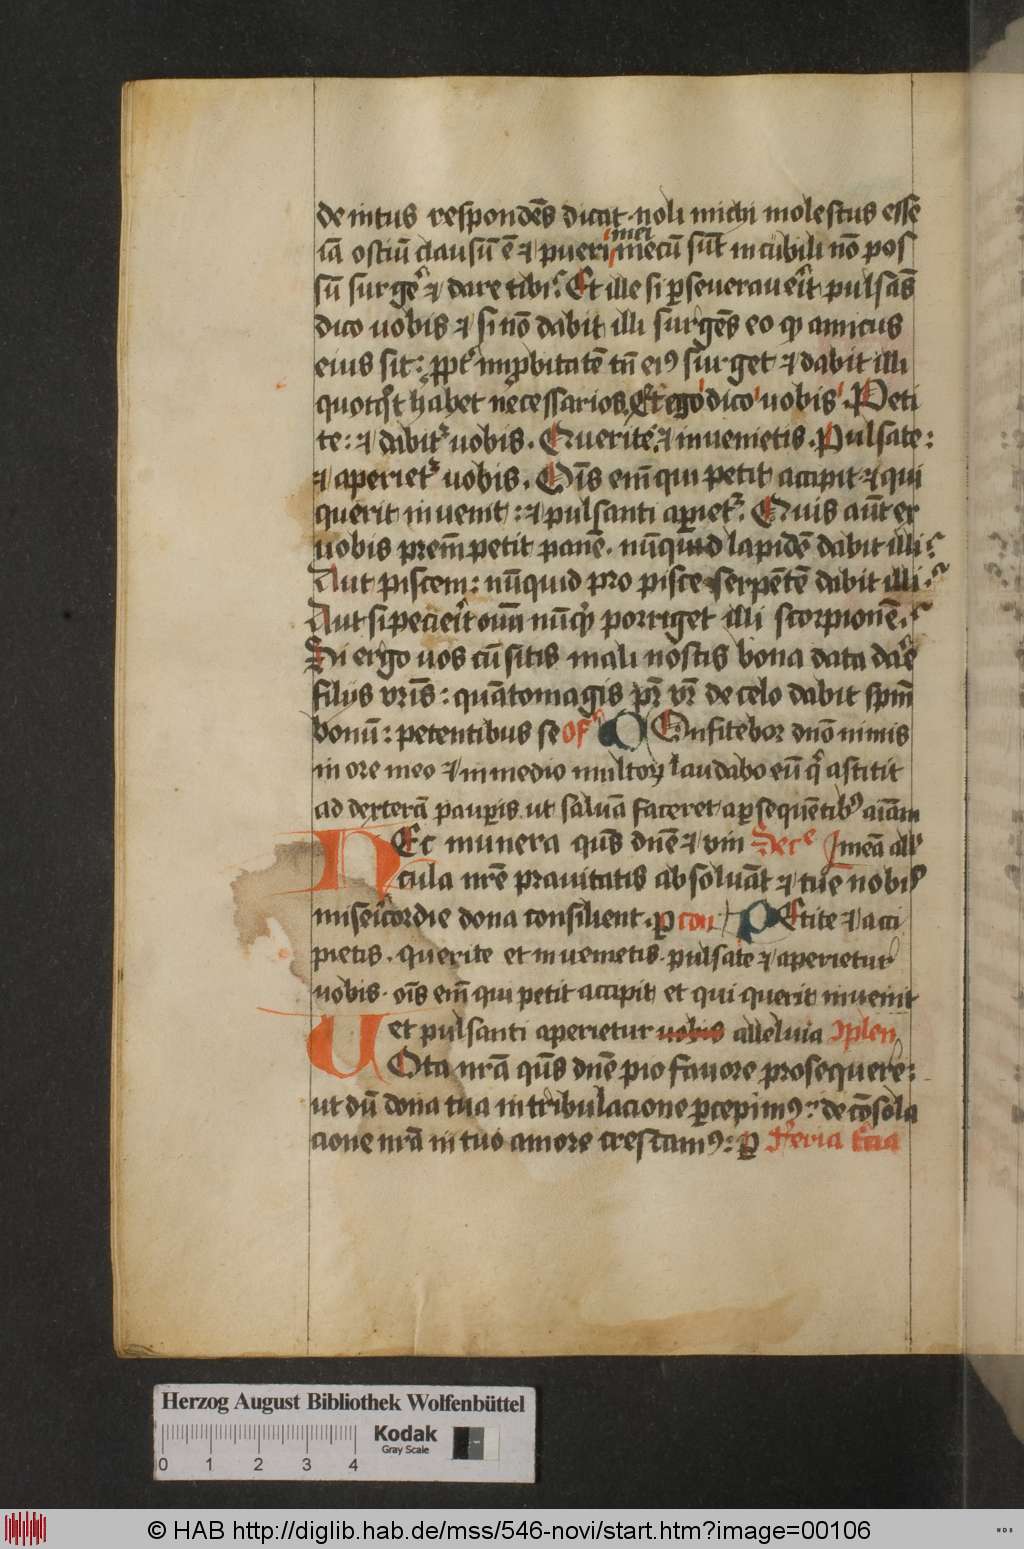 de intus respondēs dicat · noli michi molestus esse
iā ostiū clausū ē ⁊ pueri mei mecū sūt in cubili nō pos
sū surgẽ ⁊ dare tibi. Et ille si ꝑseverauerit pulsās
dico uobis ⁊ si nō dabit illi surgēs eo ꝙ amicus
eius sit : ꝓpt̾ improbitatē tn̄ eiꝰ surget ⁊ dabit illi
quotq̄t habet necessarios Et ego dico uobis . Peti
te : ⁊ dabit̾ uobis . Querite ⁊ inuenietis . Pulsate :
⁊ aperiet̾ uobis . Oīs em̄ qui petit accipit ⁊ qui
querit inuenit : ⁊ pulsanti aꝑiet̾ . Quis aūt ex
uobis prēm petit panē . nūquid lapidē dabit illi
Aut piscem : nūquid pro pisce serpētē dabit illi .
Aut si pecierit ouū nūq̇d porriget illi scorpionē .
Si ergo uos cū sitis mali nostis bona data darē
filijs vr̄is : quātomagis pr̄ vr̄ de celo dabit spm̄
bonū : petentibus se Of Confitebor dnō nimis
in ore meo ⁊ in medio multoꝝ laudabo eū q̇ astitit
ad dexterā pauꝑis ut saluā faceret a ꝑsequētibꝰ aīam
Hec munera qūs dnē ⁊ vin Secᵉ meā allᵃ
cula nr̄e prauitatis absoluāt ⁊ tue nobis
misericordie dona consilient . ꝑ con Petite ⁊ acci
pietis . querite et inuenietis . pulsate ⁊ aperietur
uobis . oīs em̄ qui petit accipit et qui querit inuenit
et pulsanti aperietur uobis alleluia Cplen
Vota nr̄a qūs dnē pio fauore prosequere :
ut dū dona tua in tribulacione ꝑcepimꝰ : de cōsola
cione nr̄a in tuo amore crescamꝰ : ꝑ Feria t̄cia
Herzog August Bibliothek Wolfenbüttel
Kodak
Gray Scale
0 1 2 3 4
© HAB http://diglib.hab.de/mss/546-novi/start.htm?image=00106